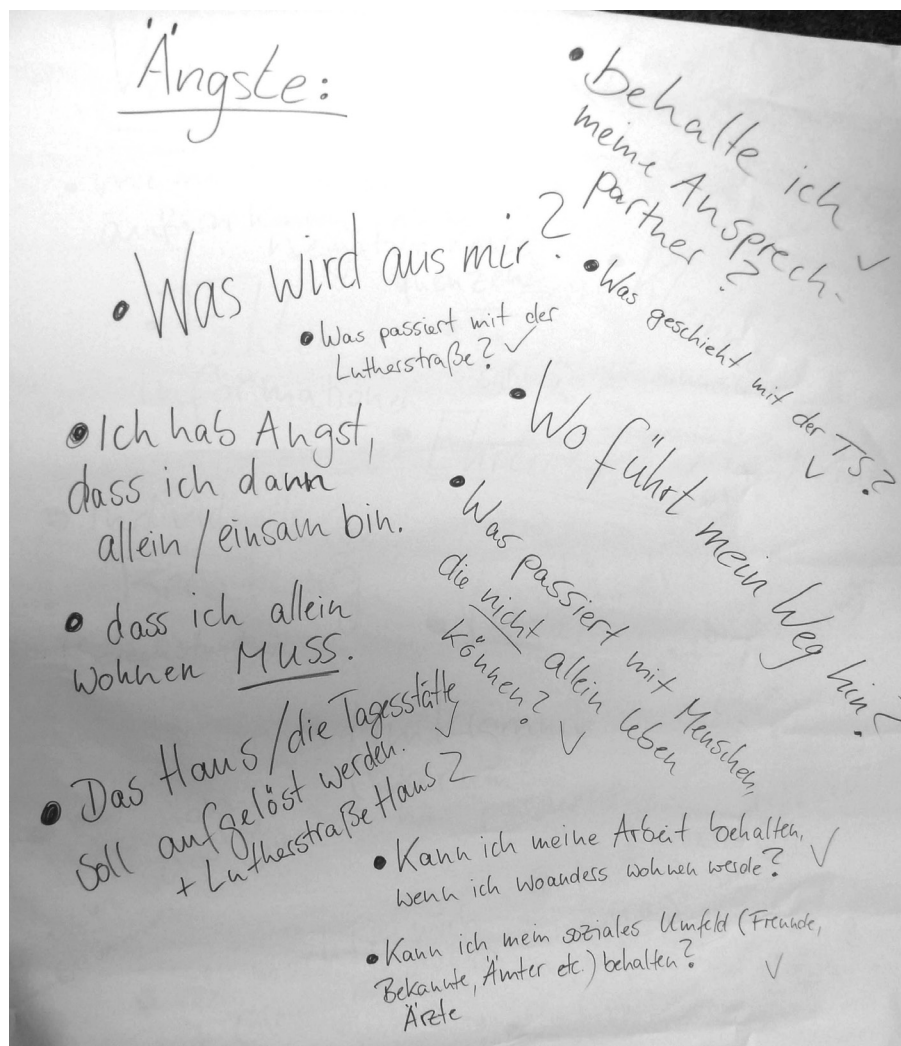 Ängste:
• behalte ich
meine Ansprech-
partner?
• Was wird aus mir?
• Was geschieht mit der TS?
• Was passiert mit der
Lutherstraße?
• Wo führt mein Weg hin?
• Ich hab Angst,
dass ich dann
allein/einsam bin.
• Was passiert mit Menschen,
die nicht allein leben
können?
• dass ich allein
wohnen MUSS.
• Das Haus/die Tagesstätte
soll aufgelöst werden.
+ Lutherstraße Haus 2
• Kann ich meine Arbeit behalten,
wenn ich woanders wohnen werde?
• Kann ich mein soziales Umfeld (Freunde,
Bekannte, Ämter etc.) behalten?
Ärzte